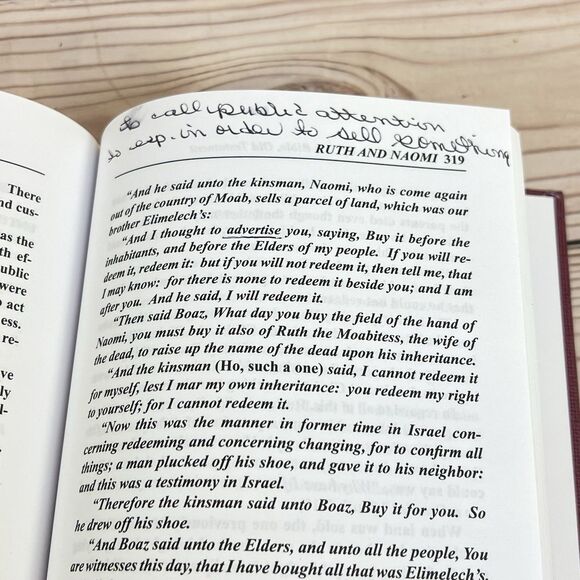 to call public attention
to esp. in order to sell something
RUTH AND NAOMI 319
"And he said unto the kinsman, Naomi, who is come again
out of the country of Moab, sells a parcel of land, which was our
brother Elimelech's:
"And I thought to advertise you, saying, Buy it before the
inhabitants, and before the Elders of my people. If you will re-
deem it, redeem it: but if you will not redeem it, then tell me, that
I may know: for there is none to redeem it beside you; and I am
after you. And he said, I will redeem it.
"Then said Boaz, What day you buy the field of the hand of
Naomi, you must buy it also of Ruth the Moabitess, the wife of
the dead, to raise up the name of the dead upon his inheritance.
"And the kinsman (Ho, such a one) said, I cannot redeem it
for myself, lest I mar my own inheritance: you redeem my right
to yourself; for I cannot redeem it.
"Now this was the manner in former time in Israel con-
cerning redeeming and concerning changing, for to confirm all
things; a man plucked off his shoe, and gave it to his neighbor:
and this was a testimony in Israel.
"Therefore the kinsman said unto Boaz, Buy it for you. So
he drew off his shoe.
"And Boaz said unto the Elders, and unto all the people, You
are witnesses this day, that I have bought all that was Elimelech's,
There
nd cus-
as the
th ef-
ublic
were
o act
ess.
re-
ve
ly
l-
s.